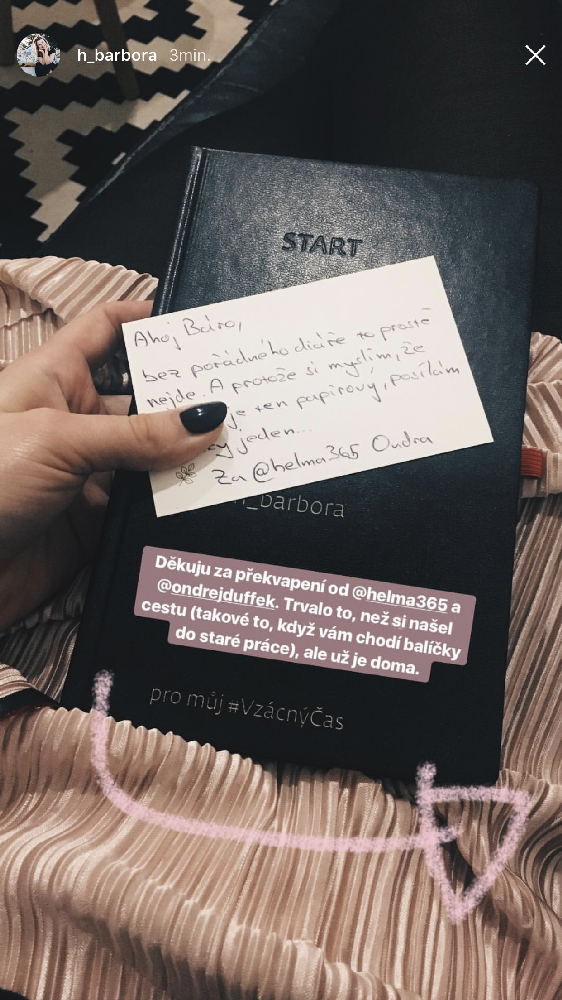 h_barbora 3min.
START
Ahoj Báro,
bez pořádného diáře to prostě
nejde. A protože si myslím, že
je ten papírový, posílám
jeden...
Za @helma365 Ondra
h_barbora
Děkuju za překvapení od @helma365 a
@ondrejduffek. Trvalo to, než si našel
cestu (takové to, když vám chodí balíčky
do staré práce), ale už je doma.
pro můj #VzácnýČas